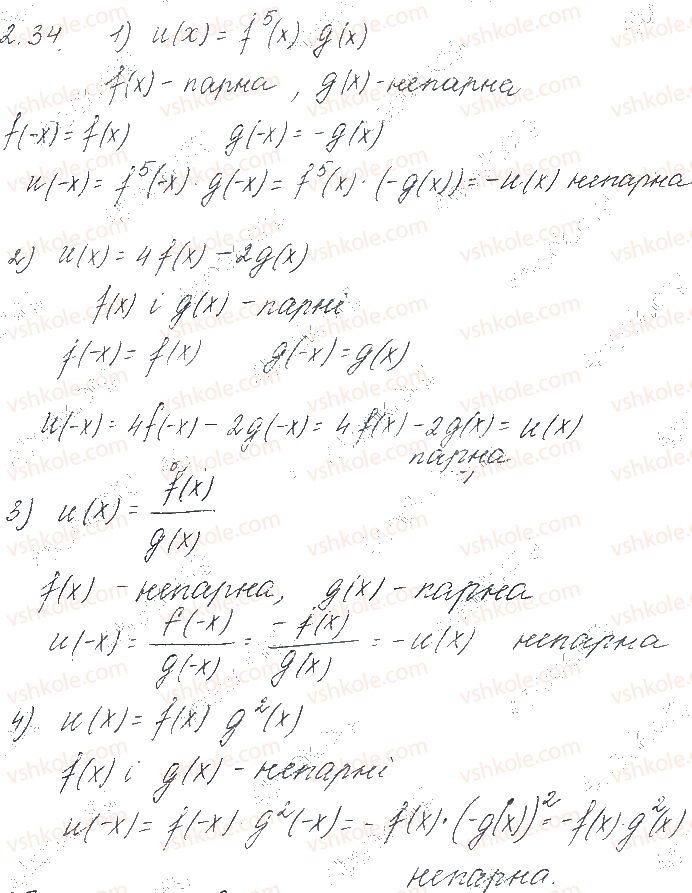 2.34. 1) u(x) = f⁵(x) g(x)
f(x) - парна , g(x) - непарна
f(-x) = f(x) g(-x) = -g(x)
u(-x) = f⁵(-x) · g(-x) = f⁵(x) · (-g(x)) = -u(x) непарна
2) u(x) = 4f(x) - 2g(x)
f(x) і g(x) - парні
f(-x) = f(x) g(-x) = g(x)
u(-x) = 4f(-x) - 2g(-x) = 4f(x) - 2g(x) = u(x)
парна
3) u(x) = f(x)/g(x)
f(x) - непарна, g(x) - парна
u(-x) = f(-x)/g(-x) = -f(x)/g(x) = -u(x) непарна
4) u(x) = f(x) g²(x)
f(x) і g(x) - непарні
u(-x) = f(-x) g²(-x) = -f(x) · (-g(x))² = -f(x) g²(x)
непарна.